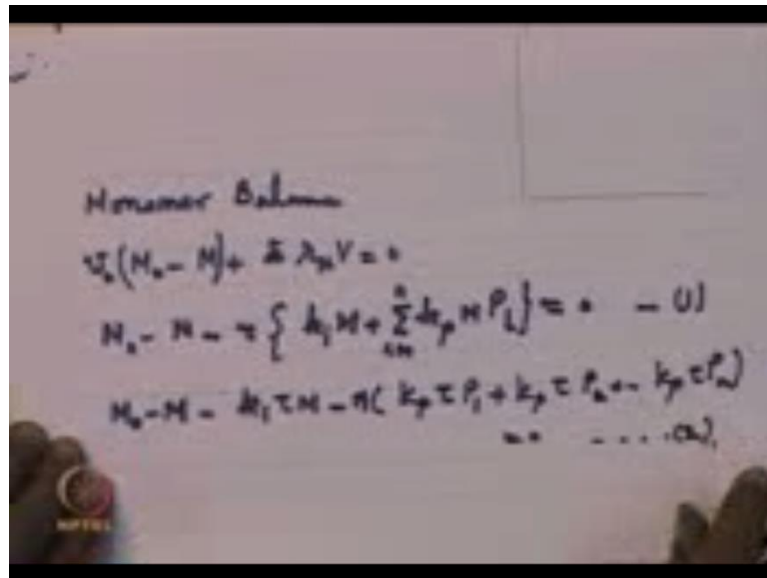 Monomer Balance
v₀(M₀ - M) + Σ r_M V = 0
M₀ - M - τ { k_i M + Σ k_p M P_i } = 0 - (1)
M₀ - M - k_i τ M - M( k_p τ P_1 + k_p τ P_2 + - k_p τ P_n)
= 0 - - - . (2)
NPTEL